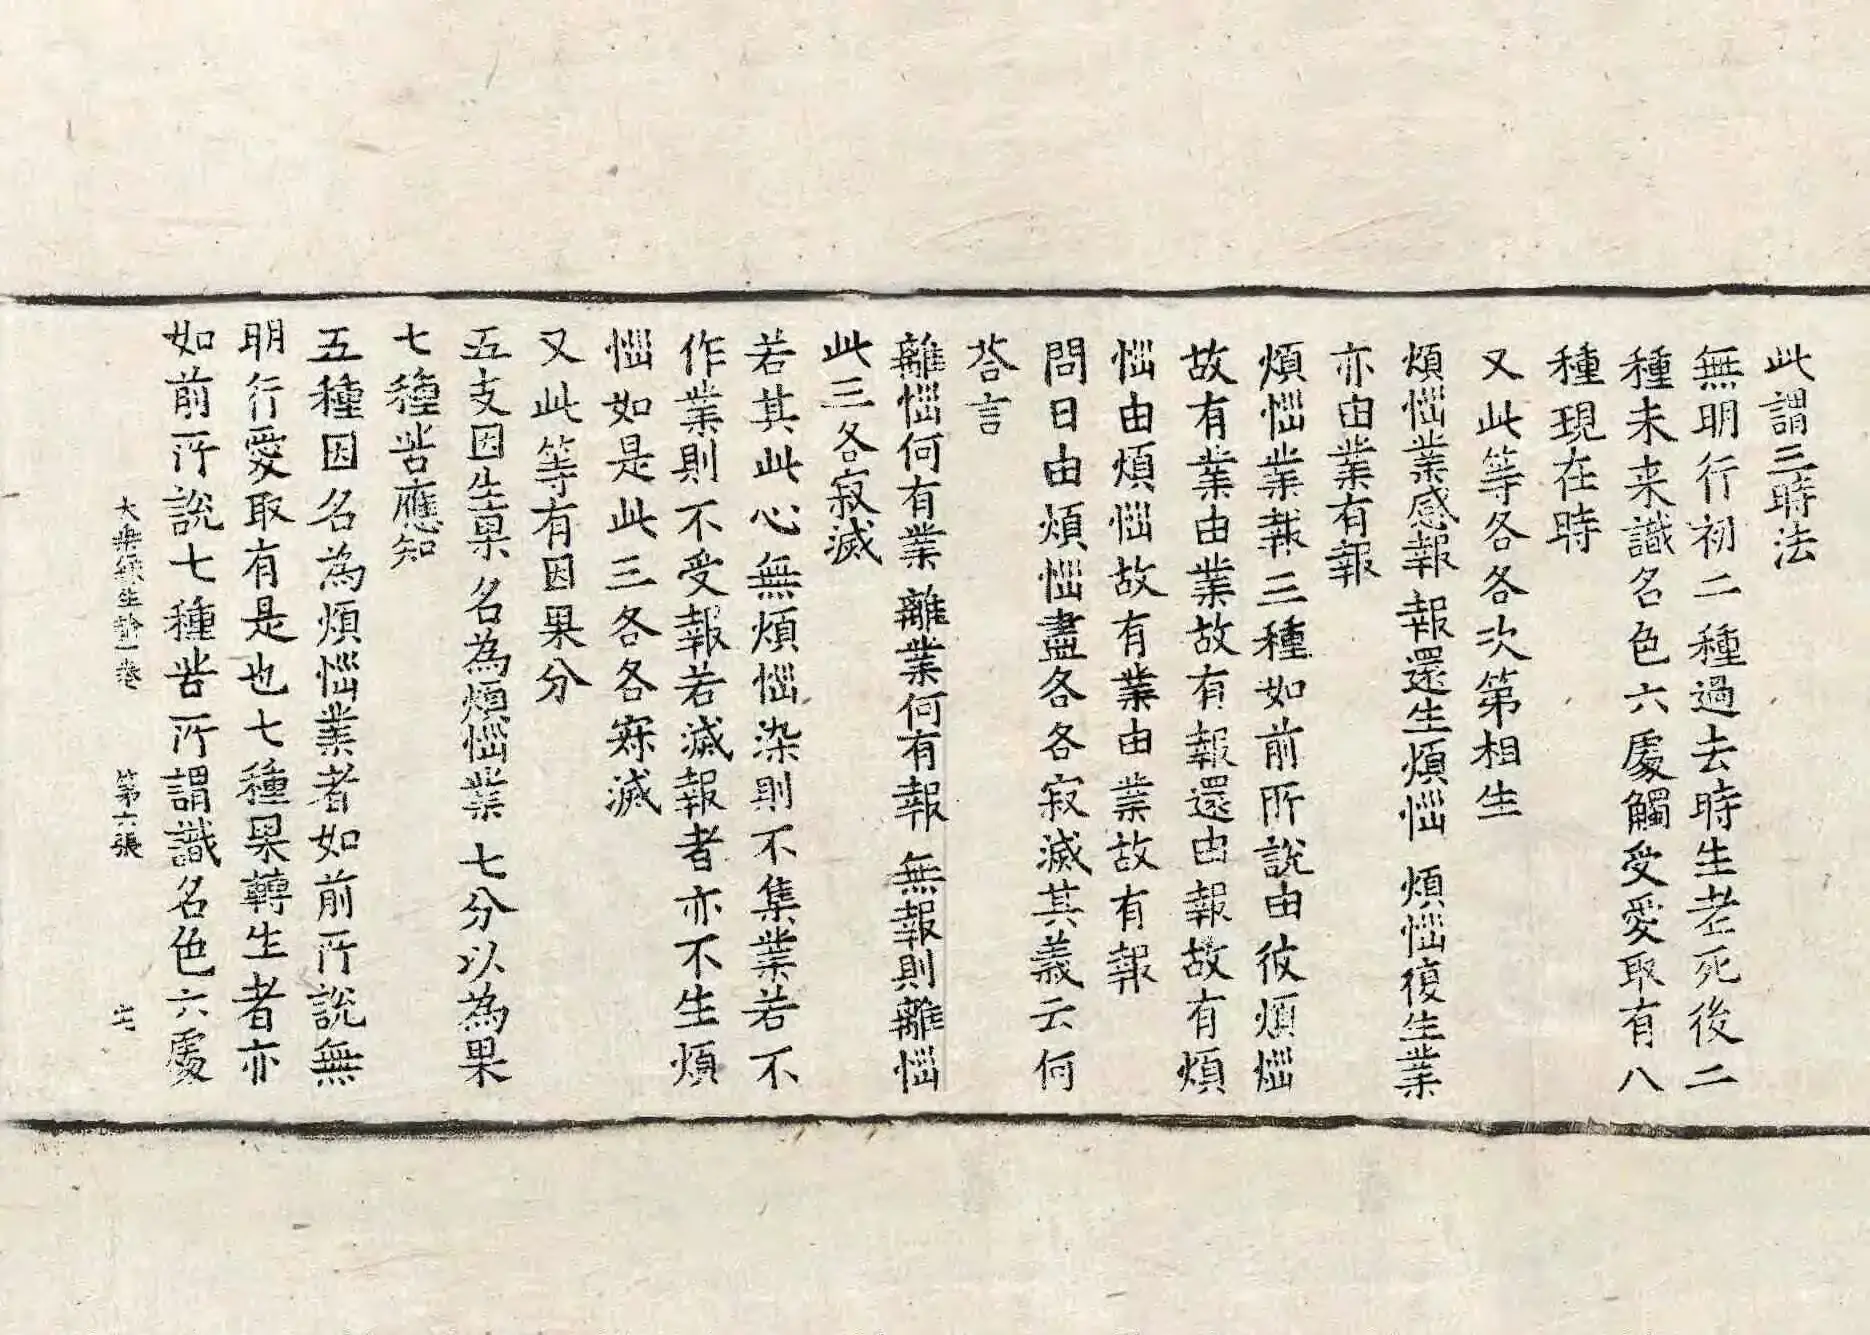 此謂三時法
無明行初二種過去時生老死後二
種未来識名色六處觸受愛取有八
種現在時
又此等各各次第相生
煩惱業感報 報還生煩惱 煩惱復生業
亦由業有報
煩惱業報三種如前所說由彼煩惱
故有業由業故有報還由報故有煩
惱由煩惱故有業由業故有報
問曰由煩惱盡各各寂滅其義云何
荅言
離惱何有業 離業何有報 無報則離惱
此三各寂滅
若其此心無煩惱染則不集業若不
作業則不受報若滅報者亦不生煩
惱如是此三各各寂滅
又此等有因果分
五支因生果 名為煩惱業 七分以為果
七種苦應知
五種因名為煩惱業者如前所說無
明行愛取有是也七種果轉生者亦
如前所說七種苦所謂識名色六處
大乘緣生論一卷 第六張